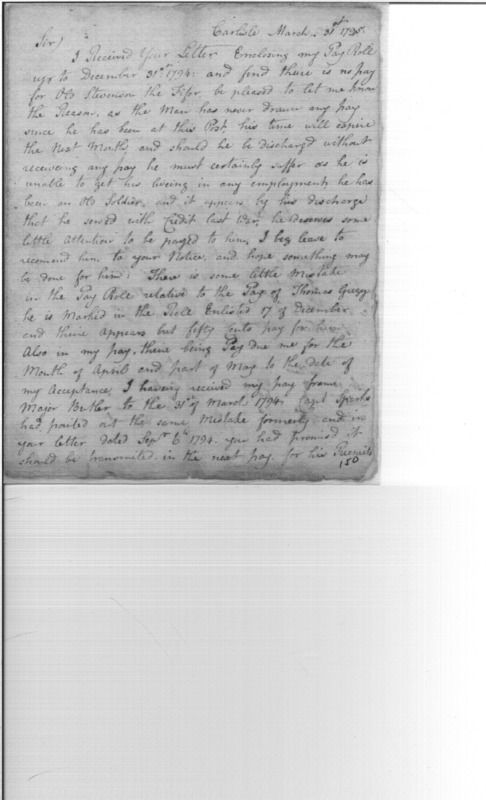 Carlisle March 31st 1795.
Sir)
I Received Your Letter Enclosing my Pay Roll
up to December 31st 1794. and find there is no pay
for Old Stevenson the Fifer, be pleased to let me know
the Reason, as the Man has never drawn any pay
since he has been at this Post, his time will expire
the Next Month, and should he be discharged without
receiveing any pay he must certainly suffer as he is
unable to get his liveing in any employment, he has
been an Old Soldier, and it appears by his discharge
that he served with Credit last War, he deserves some
little attention to be payed to him, I beg leave to
recomend him to your Notice, and hope something may
be done for him. There is some little Mistake
in the Pay Role relative to the Pay of Thomas
he is Marked in the Role Enlisted 17 of December
and theire appears but fifty cents pay for him
Also in my pay, theire being Pay due me for the
Month of April and part of May to the date of
my Acceptance, I haveing received my pay from
Major Butler to the 31st of March 1794, Capt Sparks
had pointed out the same Mistake formerly and in
your letter dated Sepr 6th 1794. you had promised it
should be transmited in the next pay for his Recruits
150